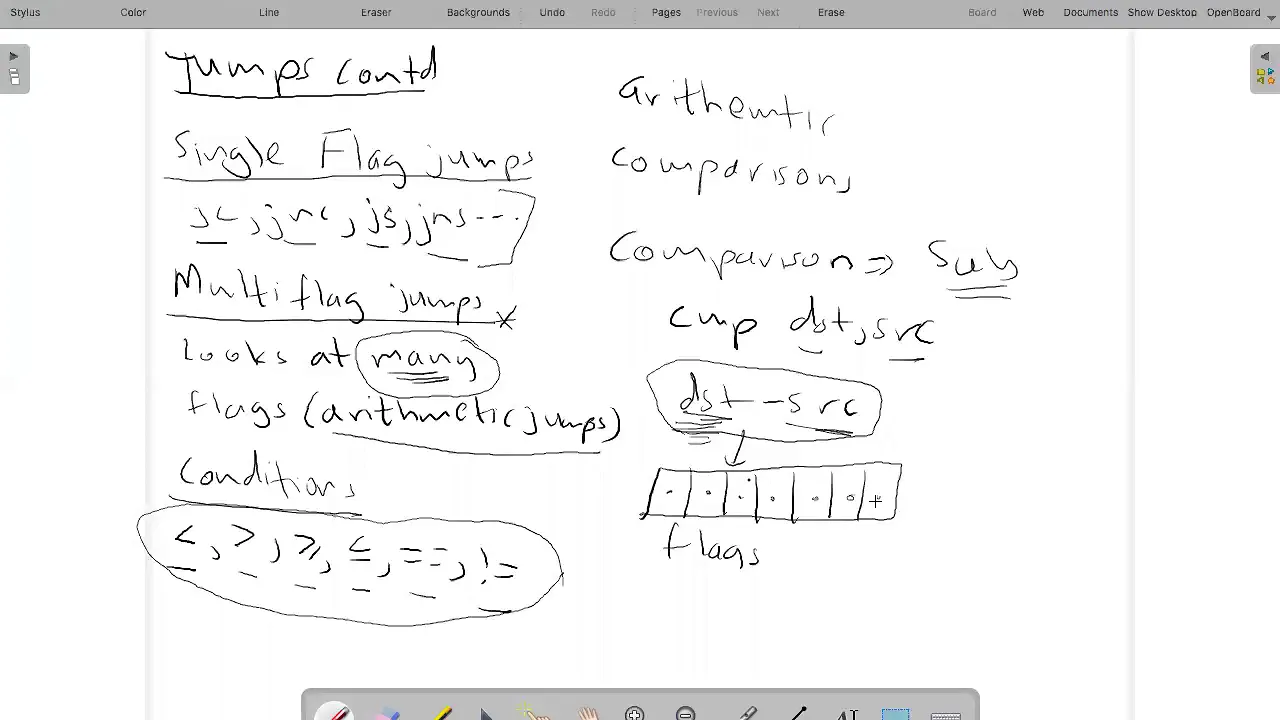 Stylus Color Line Eraser Backgrounds Undo Redo Pages Previous Next Erase Board Web Documents Show Desktop OpenBoard
Jumps contd
Single Flag jumps
jc, jnc, js, jns ---
Multiflag jumps
looks at many
flags (arithmetic jumps)
Conditions
<, >, ≥, ≤, ==, !=
arithemtic
comparisons
Comparison => Sub
cmp dst, src
dst - src
flags